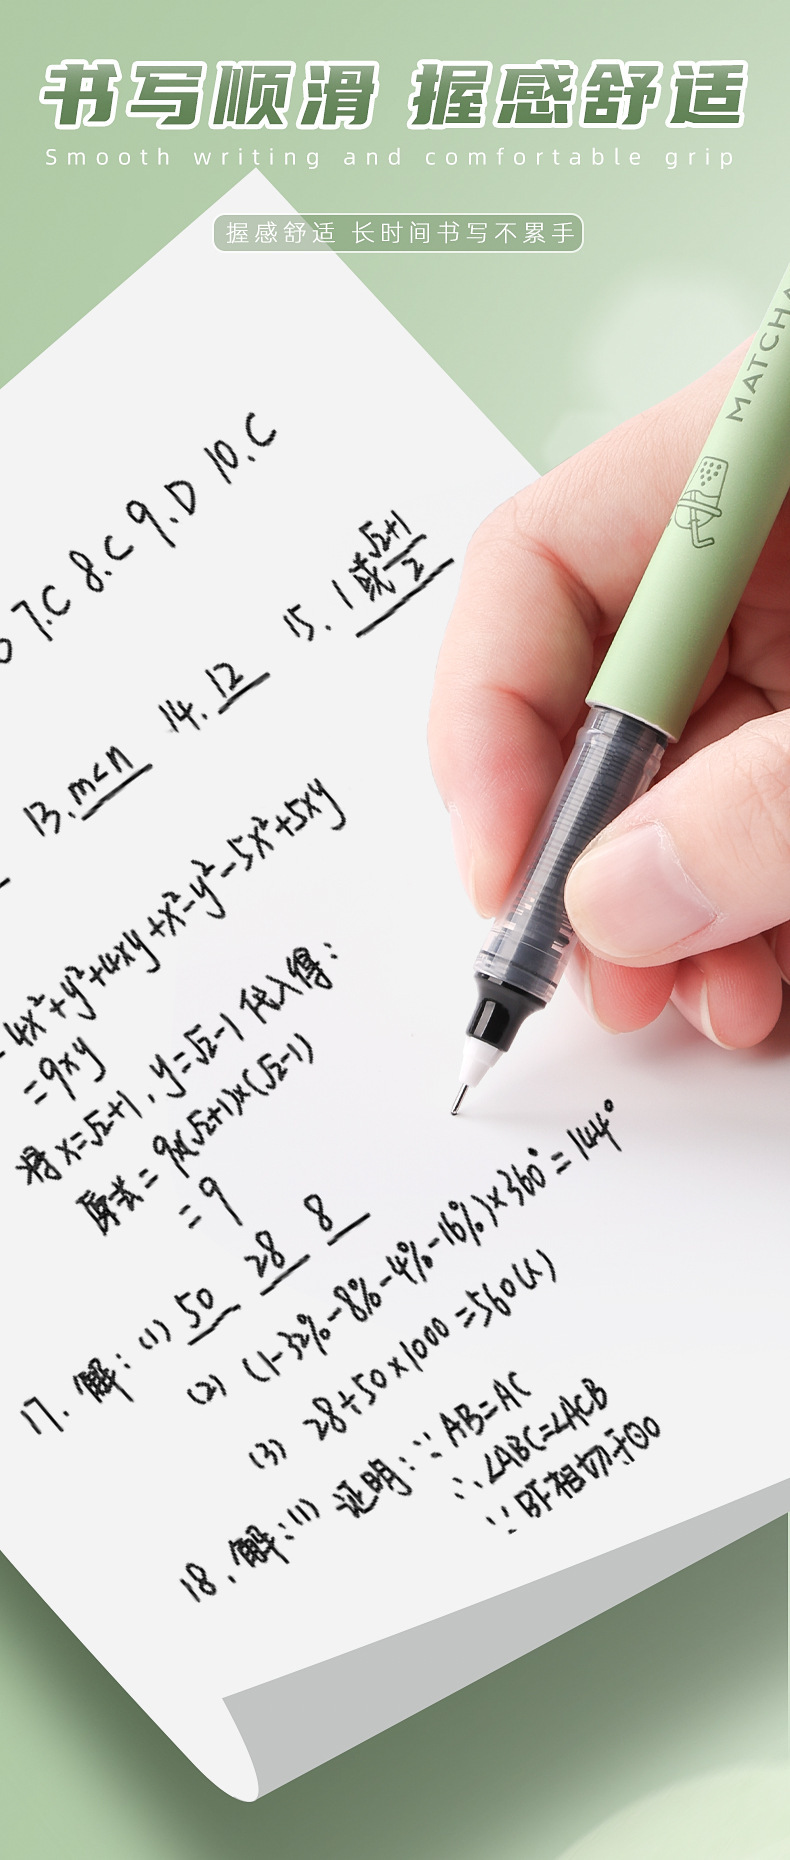 书写顺滑 握感舒适
Smooth writing and comfortable grip
握感舒适 长时间书写不累手
MATCHA
7.C 8.C 9.D 10.C
13.m<n 14.12 15.1或(√2+1)/2
4x²+y²+4xy+x²-y²-5x²+5xy
=9xy
将x=√2+1,y=√2-1代入得:
原式=9×(√2+1)×(√2-1)
=9
17.解:(1)50 28 8
(2)(1-32%-8%-4%-16%)×360°=144°
(3)28÷50×1000=560(人)
18.解:(1)证明:∵AB=AC
∴∠ABC=∠ACB
∵BF相切于⊙O